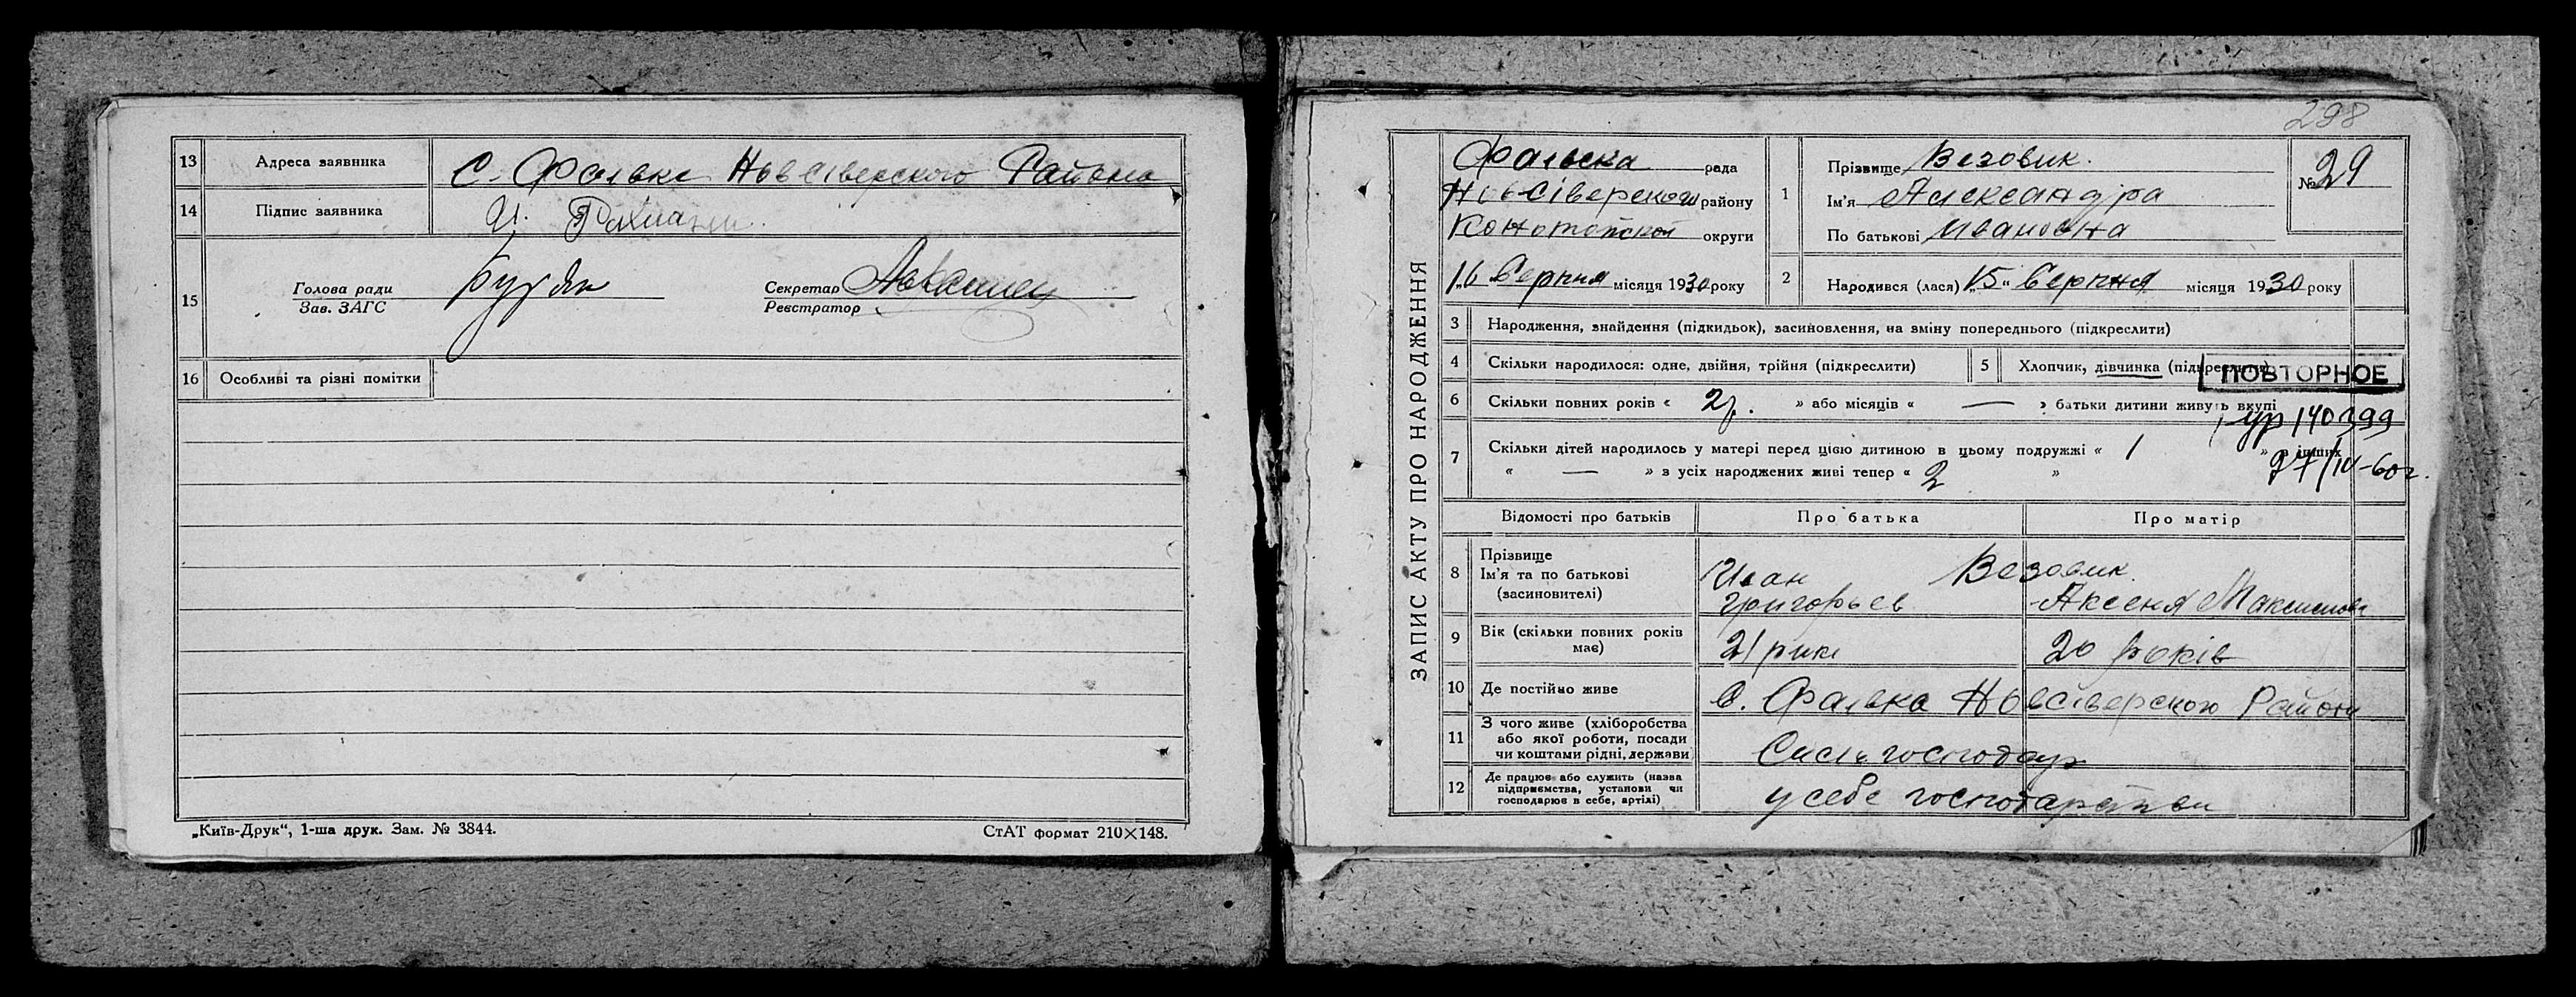 13 Адреса заявника С. Фаівка Новсіверского Района
14 Підпис заявника И.
15 Голова ради Зав. ЗАГС Буряк Секретар Реєстратор
16 Особливі та різні помітки
„Київ-Друк“, 1-ша друк. Зам. № 3844. СтАТ формат 210×148.
298
ЗАПИС АКТУ ПРО НАРОДЖЕННЯ
Фаівска рада
Новсіверского району
Конотопской округи
„16 Серпня місяця 1930 року
1 Прізвище Везовик.
Ім'я Александра
По батькові Ивановна
№ 29
2 Народився (лася) „15“ Серпня місяця 1930 року
3 Народження, знайдення (підкидьок), засиновлення, на зміну попереднього (підкреслити)
4 Скільки народилося: одне, двійня, трійня (підкреслити) 5 Хлопчик, дівчинка (підкреслити)
ПОВТОРНОЕ
6 Скільки повних років « 2р. » або місяців « — » батьки дитини живуть вкупі
ур 140399
7 Скільки дітей народилось у матері перед цією дитиною в цьому подружжі « 1 » в інших
« — » з усіх народжених живі тепер « 2 »
27/IV-60г.
Відомості про батьків Про батька Про матір
8 Прізвище Ім'я та по батькові (засиновителі) Везовик.
Иван Григорьев Аксеня Максимова
9 Вік (скільки повних років має) 21 рик 20 років
10 Де постійно живе С. Фаівка Новсіверского Району
11 З чого живе (хліборобства або якої роботи, посади чи коштами рідні, держави) Сиськ господар
12 Де працює або служить (назва підприємства, установи чи господарює в себе, артілі) у себе господарстви